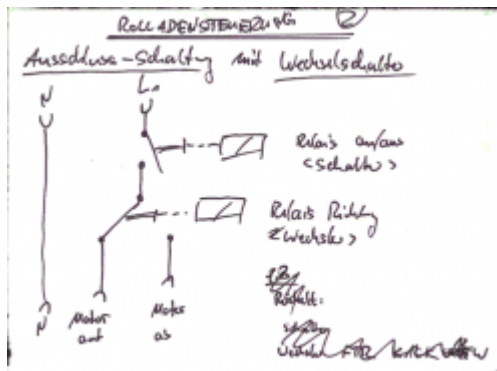 ROLLADENSTEUERUNG 2
Ausschluss-Schaltung mit Wechselschalter
N L
Relais an/aus
<Schalter>
Relais Richtung
<Wechsler>
N Motor auf Motor ab